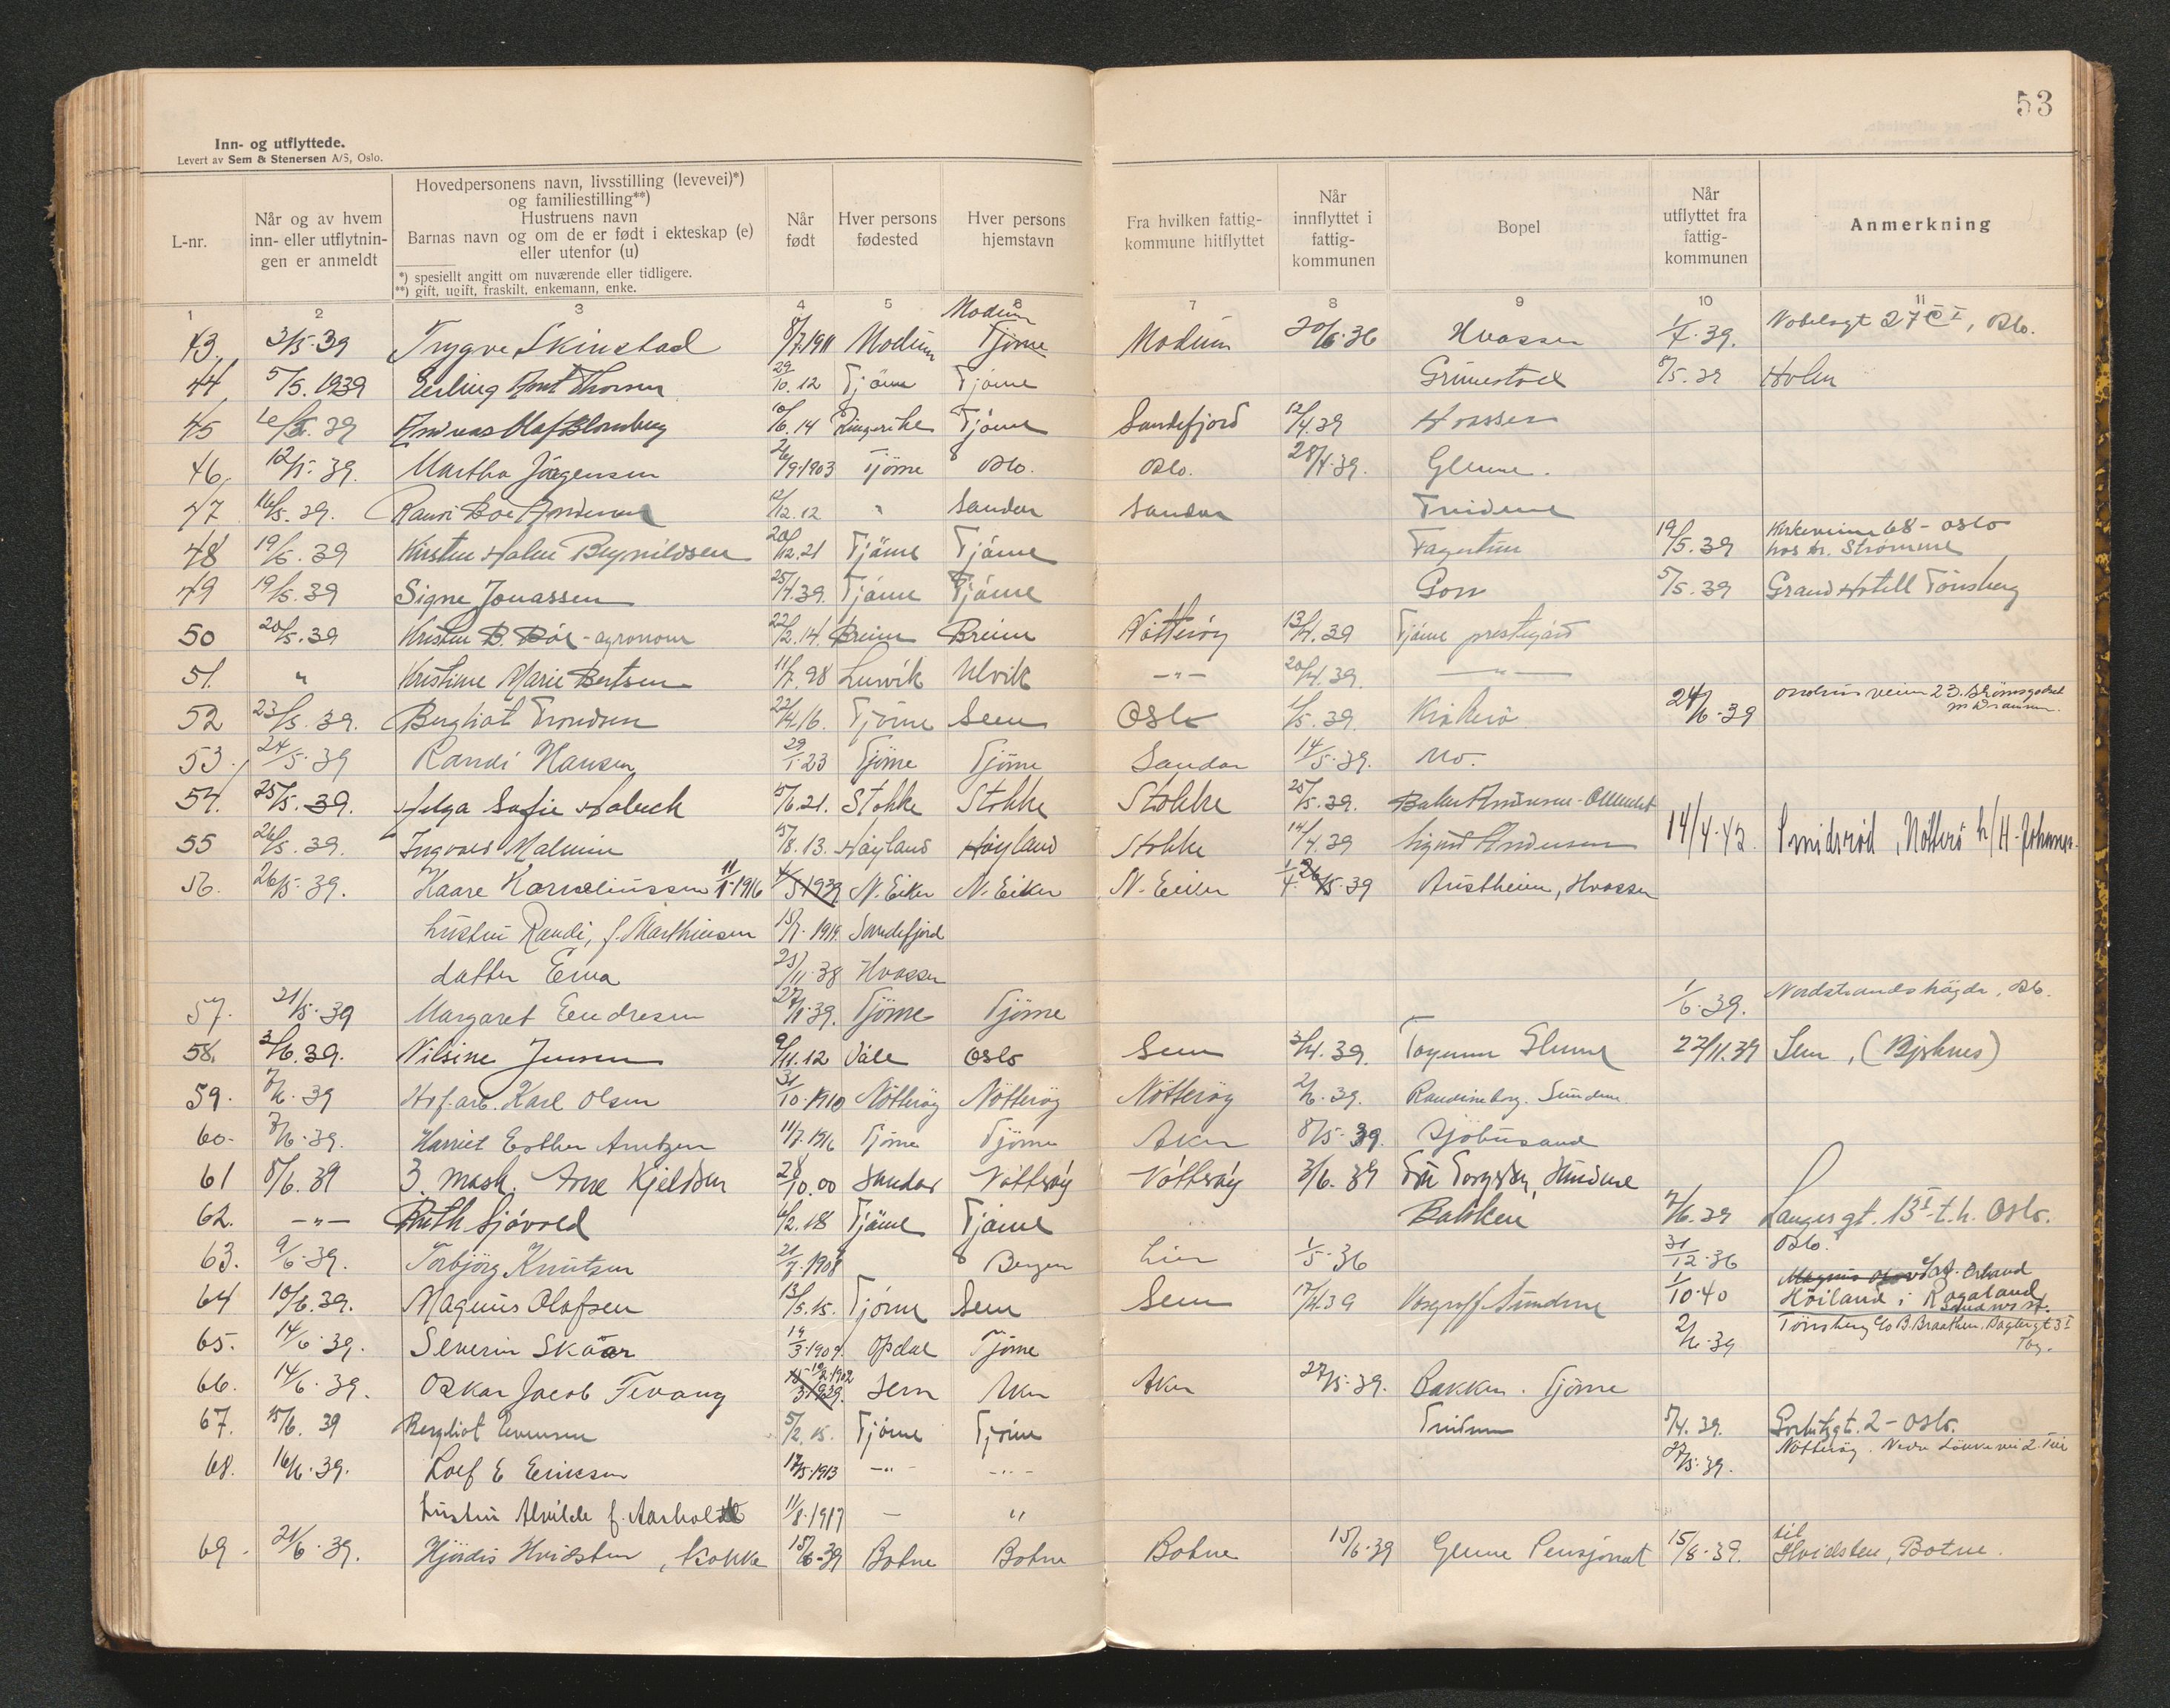 53
Inn- og utflyttede.
Levert av Sem & Stenersen A/S, Oslo.
L-nr.
Når og av hvem inn- eller utflytnin-gen er anmeldt
Hovedpersonens navn, livsstilling (levevei)*)
og familiestilling**)
Hustruens navn
Barnas navn og om de er født i ekteskap (e)
eller utenfor (u)
*) spesiellt angitt om nuværende eller tidligere.
**) gift, ugift, fraskilt, enkemann, enke.
Når født
Hver persons fødested
Hver persons hjemstavn
Fra hvilken fattig-kommune hitflyttet
Når innflyttet i fattig-kommunen
Bopel
Når utflyttet fra fattig-kommunen
Anmerkning
1 2 3 4 5 6 7 8 9 10 11
Modum
43. 3/5-39 Trygve Skinstad 8/7.1911 Modum Tjöme Modum 20/6-36 Hvasser 1/7.39. Nobelsgt 27 C I, Oslo.
44 5/5.1939 Erling Thorsen 29/10.12 Tjöme Tjöme Grimestad 8/5.39 Holm
45 39 Andreas Olaf Blomberg 10/6.14 Ringerike Tjöme Sandefjord 12/4.39 Hvasser
46. 12/5.39. Martha Jörgensen 26/9.1903 Tjöme Oslo. Oslo. 28/4.39. Glenne.
47 16/5.39. Randi Boe Andersen 12/12.12 " Sandar Sandar
48 19/5.39 Kirsten Brynildsen 20/12.21 Tjöme Tjöme Fagertun 19/5.39 Kirkeveien 68 - Oslo
hos hr. Strömme
49 19/5.39 Signe Jonassen 25/4.39. Tjöme Tjöme 5/5.39 Grand Hotell Tönsberg
50 20/5.39 Kristen B. Böe - agronom 22/2.14 Breim Breim Nötteröy 13/4.39 Tjöme prestegård
51. " Kristine Marie Bertsen 11/7.98 Ulvik -"- 20/4.39. -"-
52 23/5.39. Bergliot Trondsen 22/4.16. Tjöme Sem Oslo 1/5.39. 24/6-39 23. Strömsgodset
53. 24/5.39 Randi Hansen 29/1.23 Tjöme Tjöme Sandar 14/5.39. Mo.
54. 25/5.39. Helga Sofie 5/6.21. Stokke Stokke Stokke 25/5.39.
55 26/5.39. Ingvald Malmin 15/8.13. Høyland Høyland Stokke 14/4.39 Sigurd Andersen 14/4.42 Smidsröd, Nötterö h/H. Johansen
56. 26/5.39. Kaare Korneliussen 11/1-1916 N. Eiker N. Eiker N. Eiker 1/4. 39 Austheim, Hvasser
hustru Randi, f. Marthinsen 15/7.1919. Sandefjord
datter Erna 25/11.38 Hvasser
57. 21/5.39 Margaret Endresen 27/1.39. Tjöme Tjöme 1/6.39. Nordstrandshögda, Oslo.
58. 2/6.39. Nilsine Jensen 9/11.12 Våle Oslo Sem 3/4.39. 22/11.39 Sem, (Bjerknes)
59. 7/6.39 Karl Olsen 31/10.1910 Nötteröy Nötteröy Nötteröy 2/6.39. Randineborg. Sundene
60. 7/6.39. Harriet Esther Arntzen 11/7.1916 Tjöme Tjöme Aker 8/5.39. Sjöbusand
61 8/6.39 3. mask. Arne Kjeldsen 28/10.00 Sandar Nötteröy Nötteröy 3/6.39
62. -"- Ruth Sjövold 6/2.18 Tjöme Tjöme Bakken 7/6.39 Langes gt. 13 I t.h. Oslo.
63. 9/6.39. Torbjörg Knutsen 21/7.1908 Bergen Lier 1/5.36 31/12.36 Oslo.
64 10/6.39. Magnus Olafsen 13/5.15. Tjöme Sem Sem 39 Sundene 1/10.40 Höiland i Rogaland
65. 14/6.39. Severin Skåar 19/3.1909. Opdal Tjöme 2/6.39 Tönsberg c/o B. Braathen.
66. 14/6.39. Oskar Jacob Tevang Sem Aker Aker 27/5.39. Bakken. Tjöme
67. 15/6.39 Bergliot Evensen 5/2.15. Tjöme Tjöme 39. 2 - Oslo.
68. 16/6.39. Rolf E Eriksen 17/5.1913 -"- -"- 27/5.39. Nötteröy.
hustru Alvilde f. Aarholdt 11/8.1917 - "
69. 21/6.39. Hjördis Hvidsten, kokke 15/6.39 Botne Botne Botne 15/6.39 Glenne Pensjonat 15/8.39. til
Hvidsten, Botne.